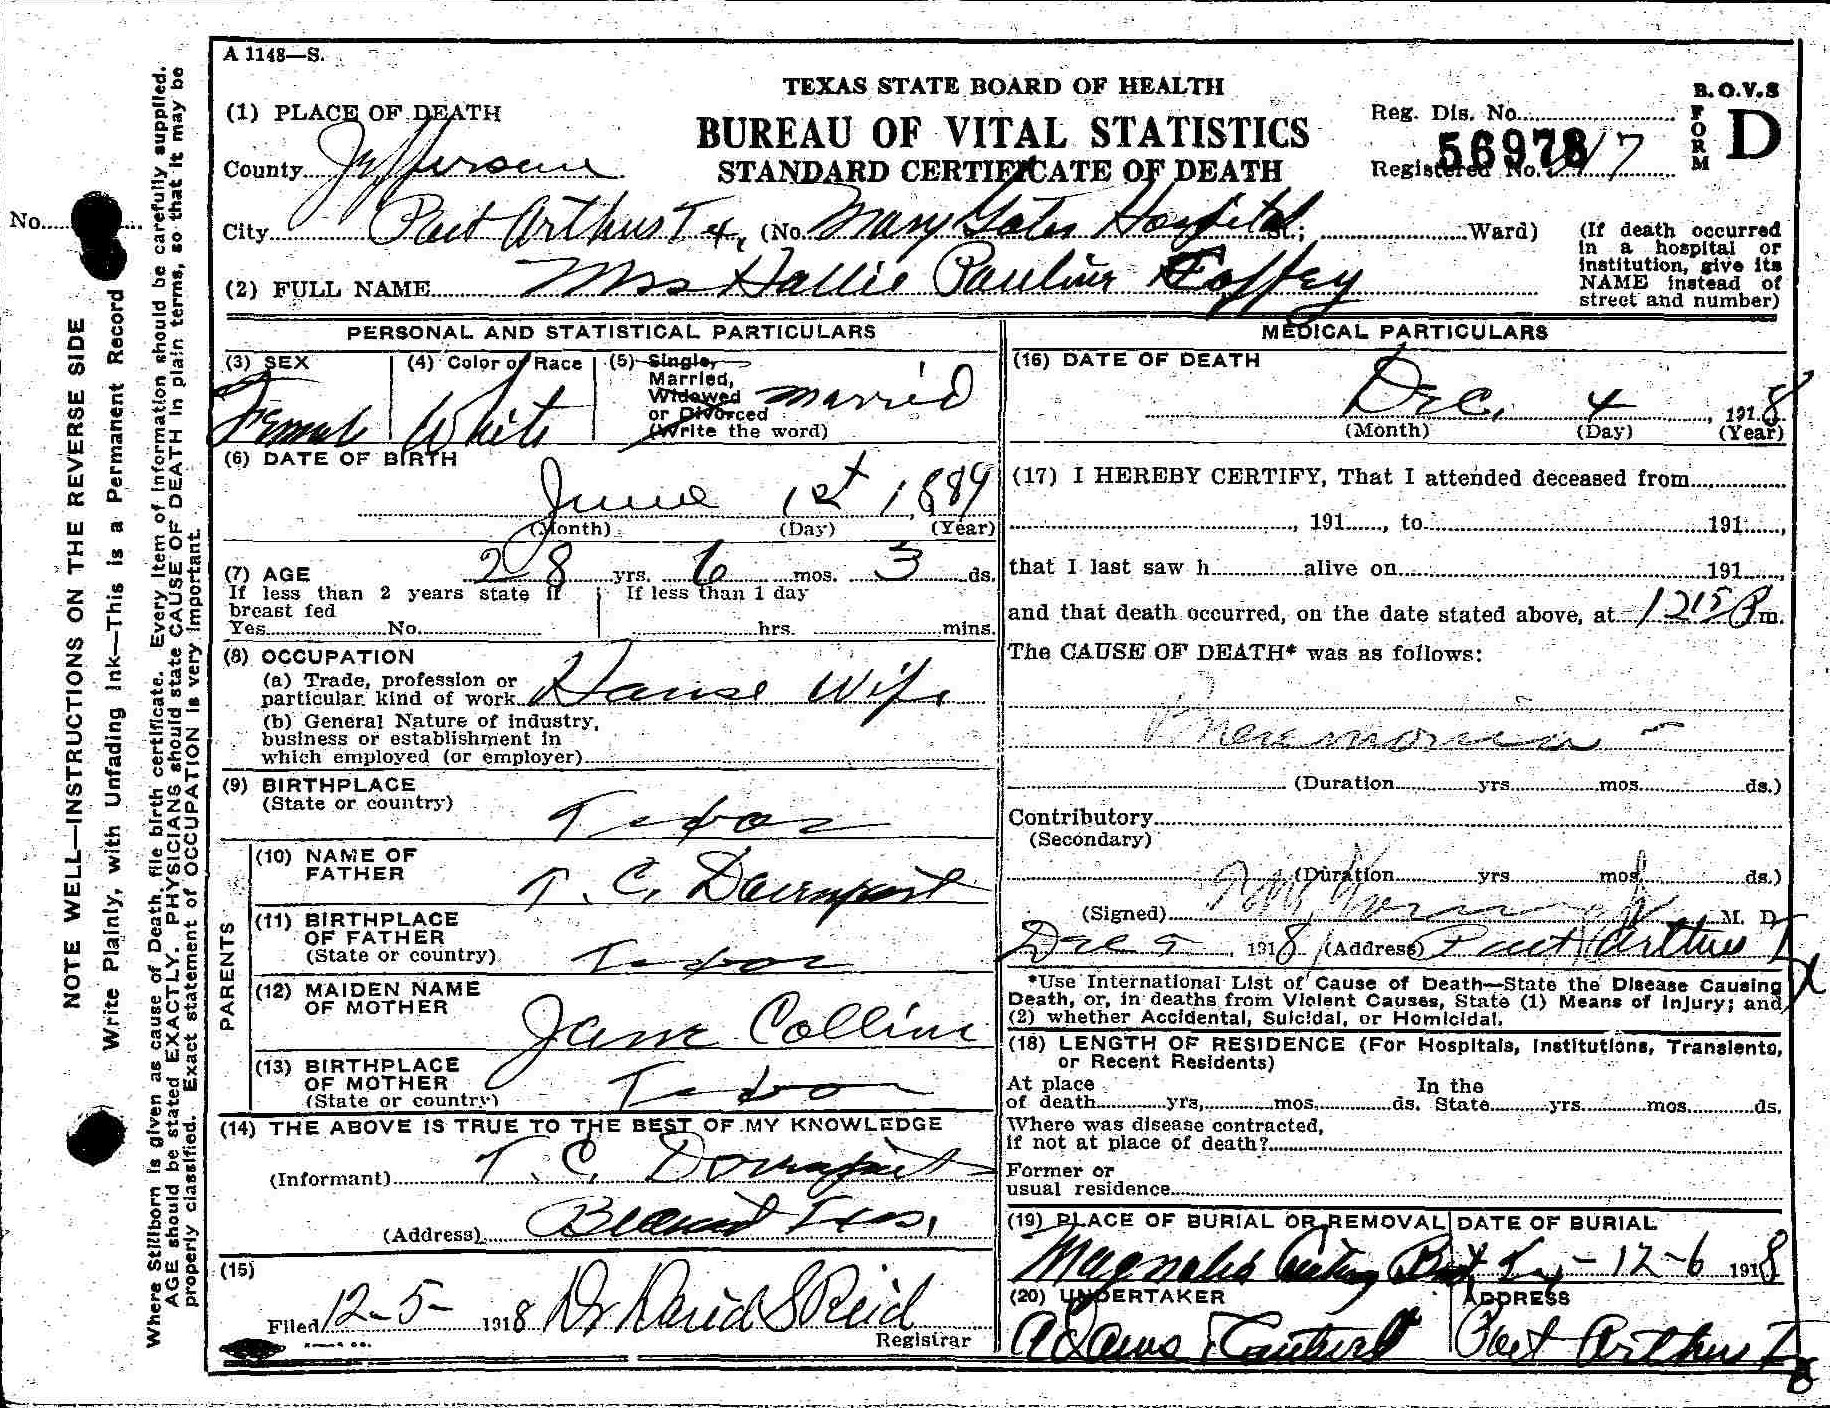 A 1148—S.
TEXAS STATE BOARD OF HEALTH
BUREAU OF VITAL STATISTICS
STANDARD CERTIFICATE OF DEATH
B.O.V.S
FORM D
Reg. Dis. No.
56978
Registered No. 17
No.
(1) PLACE OF DEATH
County Jefferson
City Port Arthur Tx, (No. Mary Gates Hospital St; Ward)
(If death occurred
in a hospital or
institution, give its
NAME instead of
street and number)
(2) FULL NAME Mrs Hallie Pauline Coffey
PERSONAL AND STATISTICAL PARTICULARS
(3) SEX
Female
(4) Color or Race
White
(5) Single,
Married,
Widowed
or Divorced
(Write the word)
married
(6) DATE OF BIRTH
June 1st 1889
(Month) (Day) (Year)
(7) AGE 28 yrs. 6 mos. 3 ds.
If less than 2 years state if
breast fed
Yes No
If less than 1 day
hrs. mins.
(8) OCCUPATION
(a) Trade, profession or
particular kind of work House Wife
(b) General Nature of industry,
business or establishment in
which employed (or employer)
(9) BIRTHPLACE
(State or country)
PARENTS
(10) NAME OF
FATHER
T. C. Davenport
(11) BIRTHPLACE
OF FATHER
(State or country)
(12) MAIDEN NAME
OF MOTHER
Jane Collins
(13) BIRTHPLACE
OF MOTHER
(State or country)
(14) THE ABOVE IS TRUE TO THE BEST OF MY KNOWLEDGE
(Informant) T. C. Davenport
(Address) Beaumont Tex,
(15)
Filed 12-5- 1918 Dr David S Reid
Registrar
MEDICAL PARTICULARS
(16) DATE OF DEATH
Dec. 4, 1918
(Month) (Day) (Year)
(17) I HEREBY CERTIFY, That I attended deceased from
, 191 , to 191 ,
that I last saw h alive on 191 ,
and that death occurred, on the date stated above, at 1215 P m.
The CAUSE OF DEATH* was as follows:
Pneumonia -
(Duration yrs mos. ds.)
Contributory
(Secondary)
(Duration yrs mos. ds.)
(Signed) M. D.
Dec 5, 1918 (Address) Port Arthur Tx
*Use International List of Cause of Death—State the Disease Causing
Death, or, in deaths from Violent Causes, State (1) Means of Injury; and
(2) whether Accidental, Suicidal, or Homicidal.
(18) LENGTH OF RESIDENCE (For Hospitals, Institutions, Transients,
or Recent Residents)
At place In the
of death yrs, mos. ds. State yrs mos. ds.
Where was disease contracted,
if not at place of death?
Former or
usual residence
(19) PLACE OF BURIAL OR REMOVAL
Magnolia
DATE OF BURIAL
12-6 1918
(20) UNDERTAKER
Adams
ADDRESS
Port Arthur Tx
NOTE WELL—INSTRUCTIONS ON THE REVERSE SIDE
Write Plainly, with Unfading Ink—This is a Permanent Record
Where Stillborn is given as cause of Death, file birth certificate. Every item of information should be carefully supplied.
AGE should be stated EXACTLY. PHYSICIANS should state CAUSE OF DEATH in plain terms, so that it may be
properly classified. Exact statement of OCCUPATION is very important.